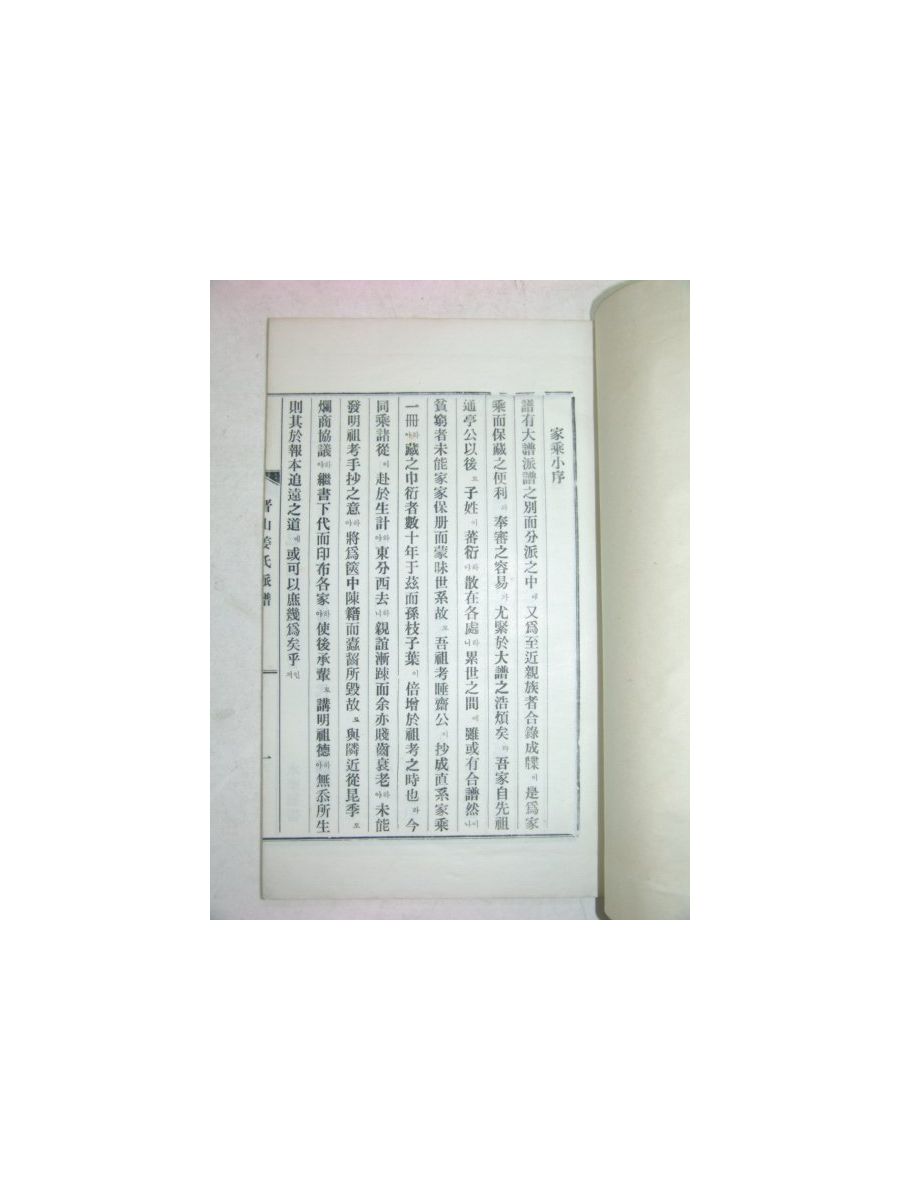 家乘小序
譜有大譜派譜之別而分派之中에又爲至近親族者合錄成牒이是爲家
乘而保藏之便利하奉審之容易가尤緊於大譜之浩煩矣라吾家自先祖
通亭公以後로子姓이蕃衍하야散在各處하니累世之間에雖或有合譜然이나
貧窮者未能家家保册而蒙昧世系故로吾祖考睡齋公이抄成直系家乘
一冊하야藏之巾衍者數十年于茲而孫枝子葉이倍增於祖考之時也라今
同乘諸從이赴於生計하야東分西去하니親誼漸踈而余亦賤齒衰老하야未能
發明祖考手抄之意하야將爲篋中陳籍而蠧齧所毁故로與隣近從昆季로
爛商協議하야繼書下代而印布各家하야使後承輩로講明祖德하야無忝所生
則其於報本追遠之道에或可以庶幾爲矣乎인저
晋山姜氏派譜
一